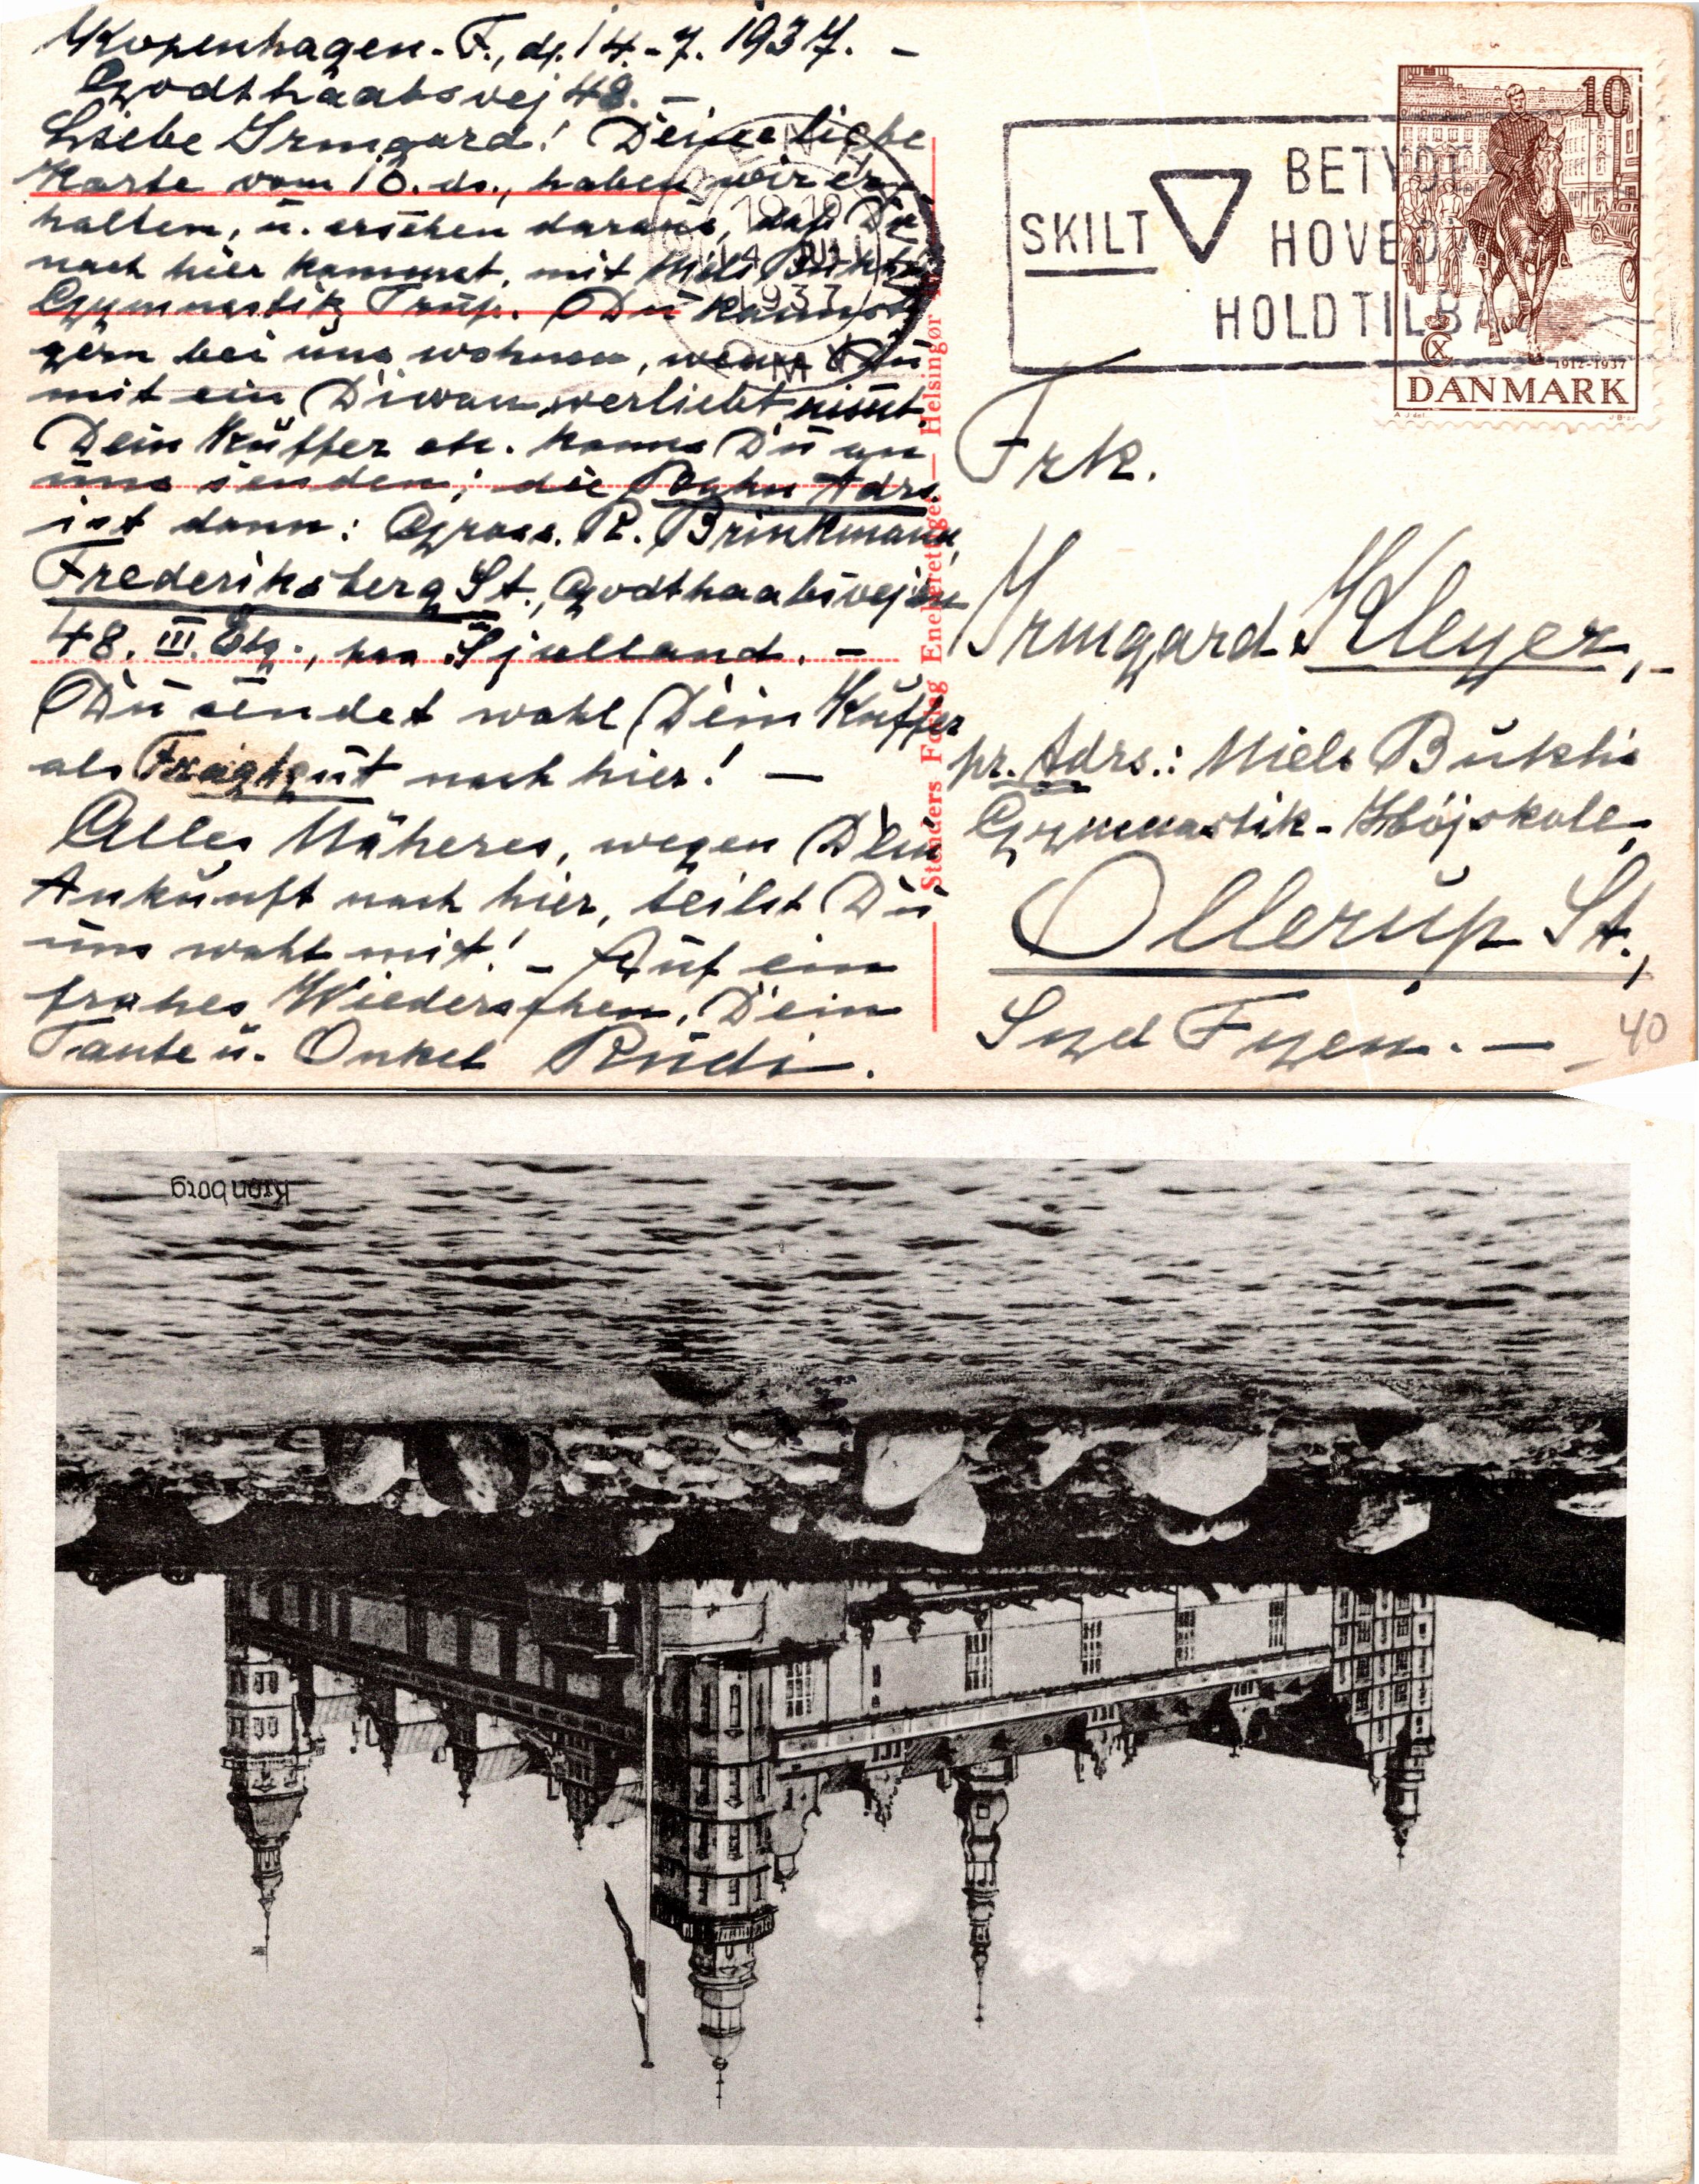 Kopenhagen-F., d. 14.-7. 1937. -
Godthaabsvej 48. -
Liebe Irmgard! Deine liebe
Karte vom 10. ds., haben wir er-
halten, u. ersehen daraus, daß Du
nach hier kommst, mit Niels Bukhs
Gymnastik Trup. Du kannst
gern bei uns wohnen, wenn Du
mit ein Diwan verliebt nimst.
Dein Kuffer etc. kanns Du an
uns senden; die Bahn Adrs.
ist dann: Gross. R. Brinkmann,
Frederiksberg St., Godthaabsvej
48. III. Etg., Sjælland. -
Du sendet wohl Dein Kuffer
als Fragtgut nach hier! -
Alles Näheres, wegen Dein
Ankunft nach hier, teilst Du
uns wohl mit! - Auf ein
frohes Wiedersehen, Dein
Tante u. Onkel Rudi.
Stenders Forlag Eneberettiget — Helsingør
19-19
14 JULI
1937
OMK
SKILT
BETYDER
HOVED
HOLD TILBA
10
C X
1912-1937
DANMARK
Frk.
Irmgard Kleyer,-
pr. Adrs.: Niels Bukhs
Gymnastik-Højskole,
Ollerup St.,
Syd Fyen. -
40
Kronborg